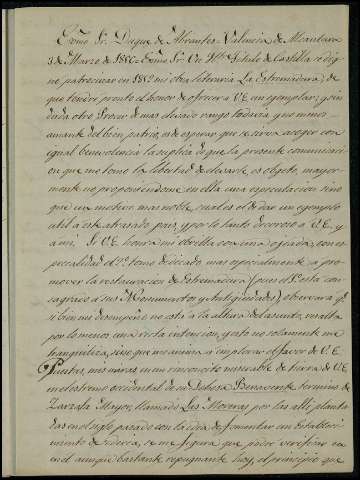 Excmo Sr. Duque de Abrantes = Valencia de Alcantara
3 de Marzo de 1882 = Excmo Sr. Un Título de Castilla se dig-
nó patrocinar en 1852 mi obra literaria La Estremadura, de
que tendré pronto el honor de ofrecer a V.E. un ejemplar; y sin
duda otro Procer de mas elevado rango todavia, y no menos
amante del bien patrio, es de esperar que se sirva acoger con
igual benevolencia la suplica de que la presente comunicaci-
on que me tomo la libertad de elevarle es objeto, mayor-
mente no proponiendome en ella una especulacion sino
que un motivo mas noble, cual es el de dar un ejemplo
util a este atrasado pais, y por lo tanto decoroso a V.E. y
a mi. Si V.E. honra mi obrilla con una ojeada, con es-
pecialidad el 2º tomo dedicado mas especialmente a pro-
mover la restauracion de Estremadura (pues el 1º esta con-
sagrado a sus Monumentos y antigüedades) observará qe
si bien mi desempeño no está a la altura del asunto, resalta
por lo menos una recta intencion, y esto no solamente me
tranquiliza, sino que me anima a implorar el favor de V.E.
Puestas mis miras en un rinconcito miserable de tierra de V.E.
en el estremo occidental de su dehesa Benavente termino de
Zarza la Mayor, llamado Las Moreras por las alli planta-
das en el siglo pasado con la idea de fomentar un Estableci-
miento de sederia, se me figura que poder verificar
en el aunque bastante repugnante hoy, el principio que